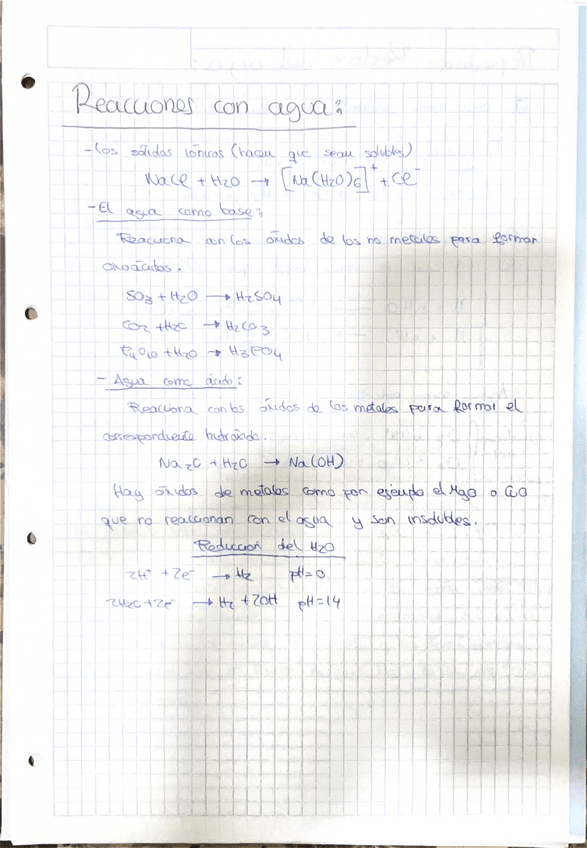 Reacciones con agua:
- Los sólidos iónicos (hacen que sean solubles)
NaCl + H2O → [Na(H2O)6]⁺ + Cl⁻
- El agua como base:
Reacciona con los óxidos de los no metales para formar
oxoácidos.
SO3 + H2O → H2SO4
CO2 + H2O → H2CO3
P4O10 + H2O → H3PO4
- Agua como ácido:
Reacciona con los óxidos de los metales para formar el
correspondiente hidróxido.
Na2O + H2O → Na(OH)
Hay óxidos de metales como por ejemplo el MgO o CuO
que no reaccionan con el agua y son insolubles.
Reducción del H2O
2H⁺ + 2e⁻ → H2 pH=0
2H2O + 2e⁻ → H2 + 2OH pH=14